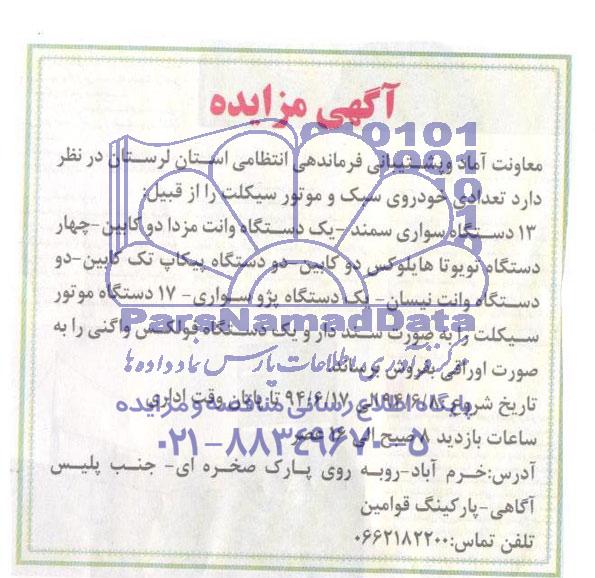 آگهی مزایده
معاونت آماد وپشتیبانی فرماندهی انتظامی استان لرستان در نظر
دارد تعدادی خودروی سبک و موتور سیکلت را از قبیل:
۱۳ دستگاه سواری سمند -یک دستگاه وانت مزدا دو کابین-چهار
دستگاه تویوتا هایلوکس دو کابین-دو دستگاه پیکاپ تک کابین-دو
دستگاه وانت نیسان- یک دستگاه پژو سواری- ۱۷ دستگاه موتور
سیکلت را به صورت سند دار و یک دستگاه فولکس واگنی را به
صورت اوراقی بفروش برساند.
تاریخ شروع ۹۴/۶/۸ الی ۹۴/۶/۱۷ تا پایان وقت اداری
ساعات بازدید ۸ صبح الی ۱۶ عصر
آدرس:خرم آباد-روبه روی پارک صخره ای- جنب پلیس
آگاهی-پارکینگ قوامین
تلفن تماس:۰۶۶۲۱۸۲۲۰۰
010101
ParsNamadData
مرکز فرآوری اطلاعات پارس نماد داده ها
پایگاه اطلاع رسانی مناقصه و مزایده
۰۲۱-۸۸۳۴۹۶۷۰-۵